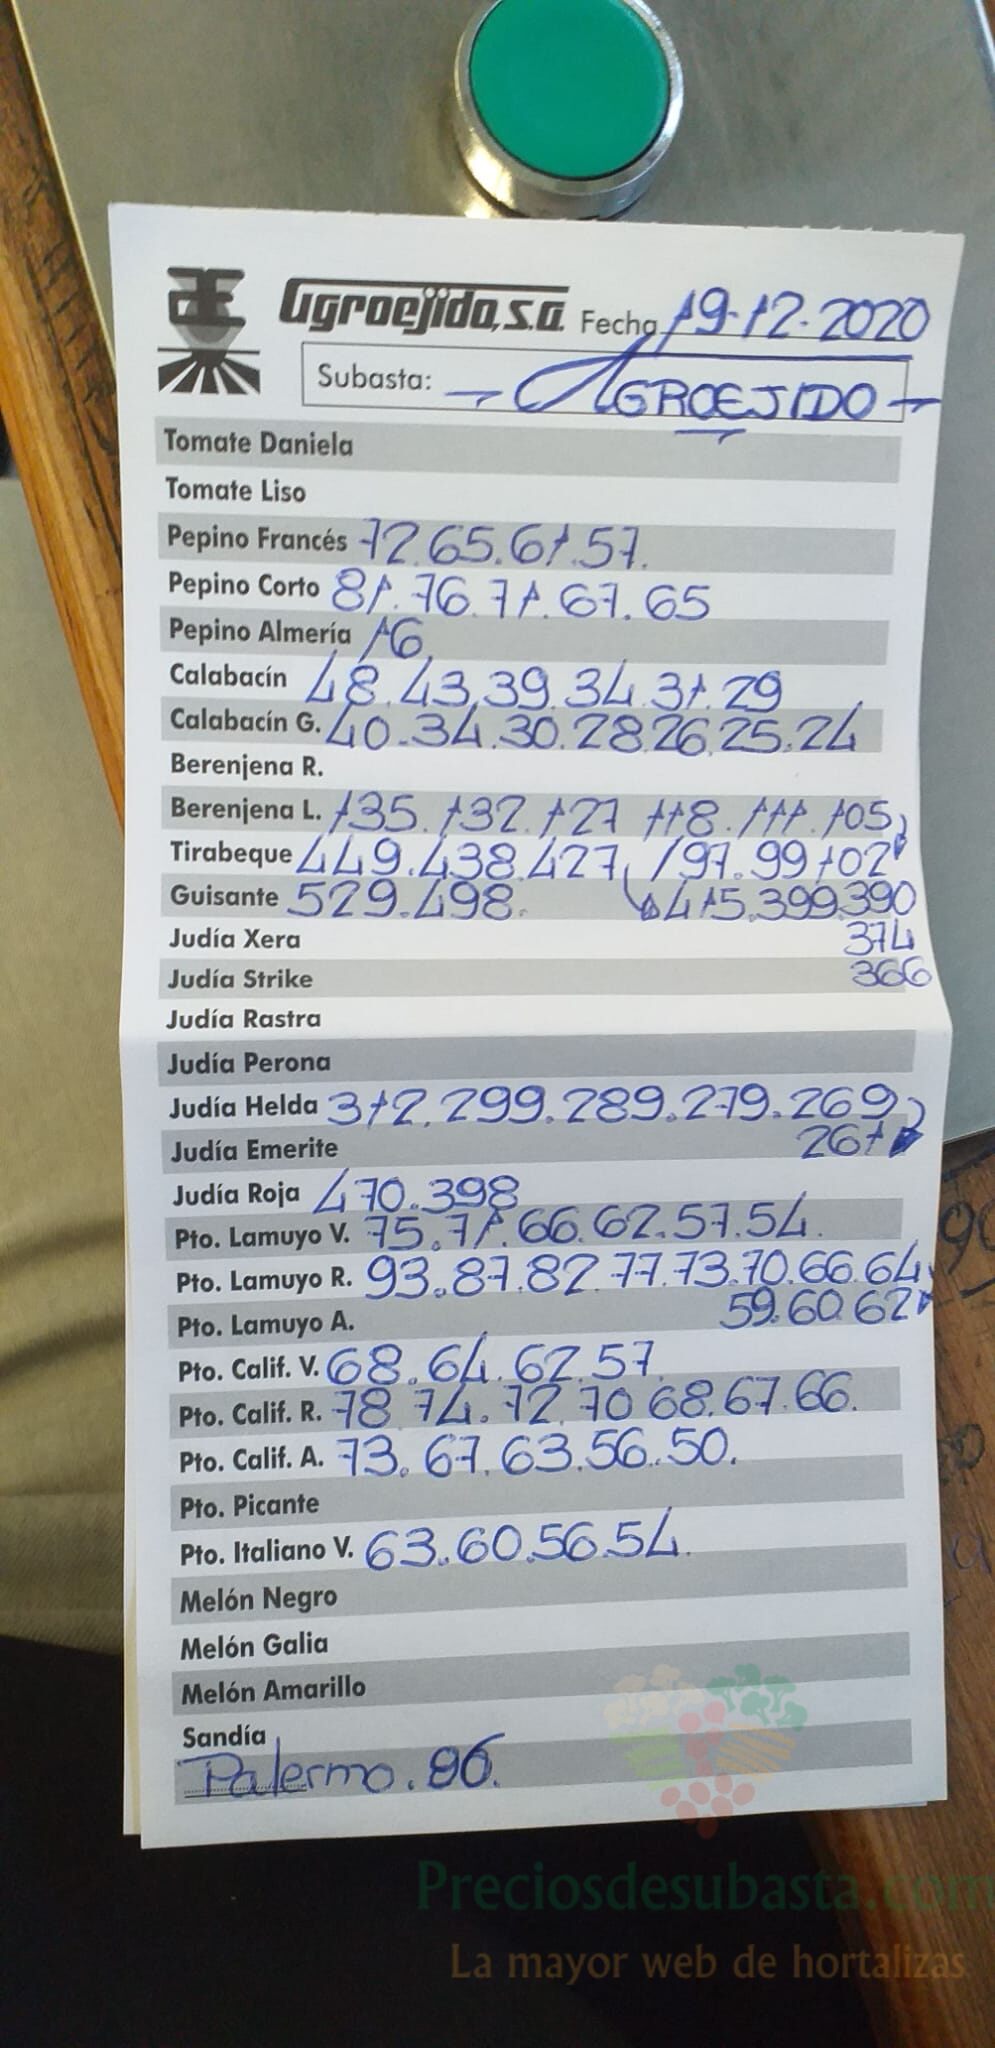 Agroejido, S.A. Fecha 19-12-2020
Subasta: - AGROEJIDO -
Tomate Daniela
Tomate Liso
Pepino Francés 72.65.61.57.
Pepino Corto 81.76.71.67.65
Pepino Almería 16.
Calabacín 48.43.39.34.31.29
Calabacín G. 40.34.30.28.26.25.24
Berenjena R.
Berenjena L. 135.132.127 118.111.105
Tirabeque 449.438.427 /97.99 102
Guisante 529.498. 415.399.390
Judía Xera 374
Judía Strike 366
Judía Rastra
Judía Perona
Judía Helda 312.299.289.279.269
Judía Emerite 261
Judía Roja 470.398
Pto. Lamuyo V. 75.71.66.62.57.54.
Pto. Lamuyo R. 93.87.82.77.73.70.66.64
Pto. Lamuyo A. 59.60.62
Pto. Calif. V. 68.64.62.57.
Pto. Calif. R. 78 74.72.70 68.67.66.
Pto. Calif. A. 73.67.63.56.50.
Pto. Picante
Pto. Italiano V. 63.60.56.54.
Melón Negro
Melón Galia
Melón Amarillo
Sandía
Palermo. 86.
Preciosdesubasta.com
La mayor web de hortalizas